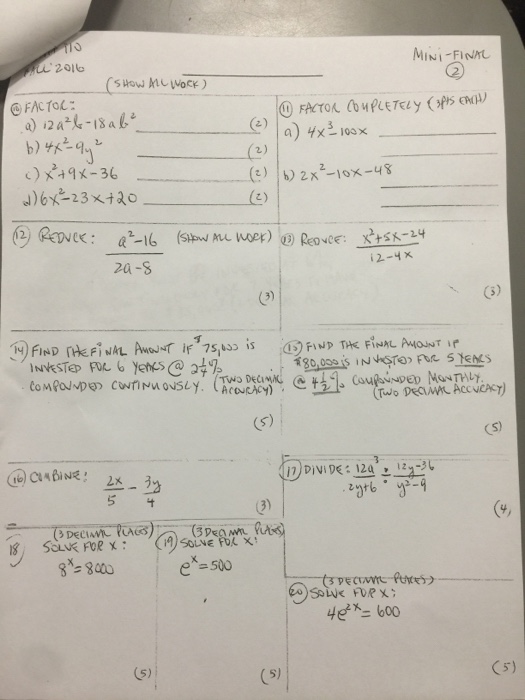 110
FALL 2016
MINI-FINAL
②
(SHOW ALL WORK)
⑩ FACTOR:
a) 12a²b-18ab² (2)
b) 4x²-9y² (2)
c) x²+9x-36 (2)
d) 6x²-23x+20 (2)
⑪ FACTOR COMPLETELY (3PTS EACH)
a) 4x³-100x
b) 2x²-10x-48
⑫ REDUCE: a²-16 (SHOW ALL WORK)
2a-8
(3)
⑬ REDUCE: x²+5x-24
12-4x
(3)
⑭ FIND THE FINAL AMOUNT IF $75,000 IS
INVESTED FOR 6 YEARS @ 2¼%
COMPOUNDED CONTINUOUSLY. (TWO DECIMAL
ACCURACY)
(5)
⑮ FIND THE FINAL AMOUNT IF
$80,000 IS INVESTED FOR 5 YEARS
@ 4½% COMPOUNDED MONTHLY.
(TWO DECIMAL ACCURACY)
(5)
⑯ COMBINE: 2x - 3y
5 4
(3)
⑰ DIVIDE: 12a³ ÷ 12y-36
2y+6 y²-9
(4,
(3 DECIMAL PLACES)
18) SOLVE FOR X:
8ˣ=8000
(5)
(3 DECIMAL PLACES)
⑲ SOLVE FOR X:
eˣ=500
(5)
(3 DECIMAL PLACES)
⑳ SOLVE FOR X:
4e²ˣ=600
(5)